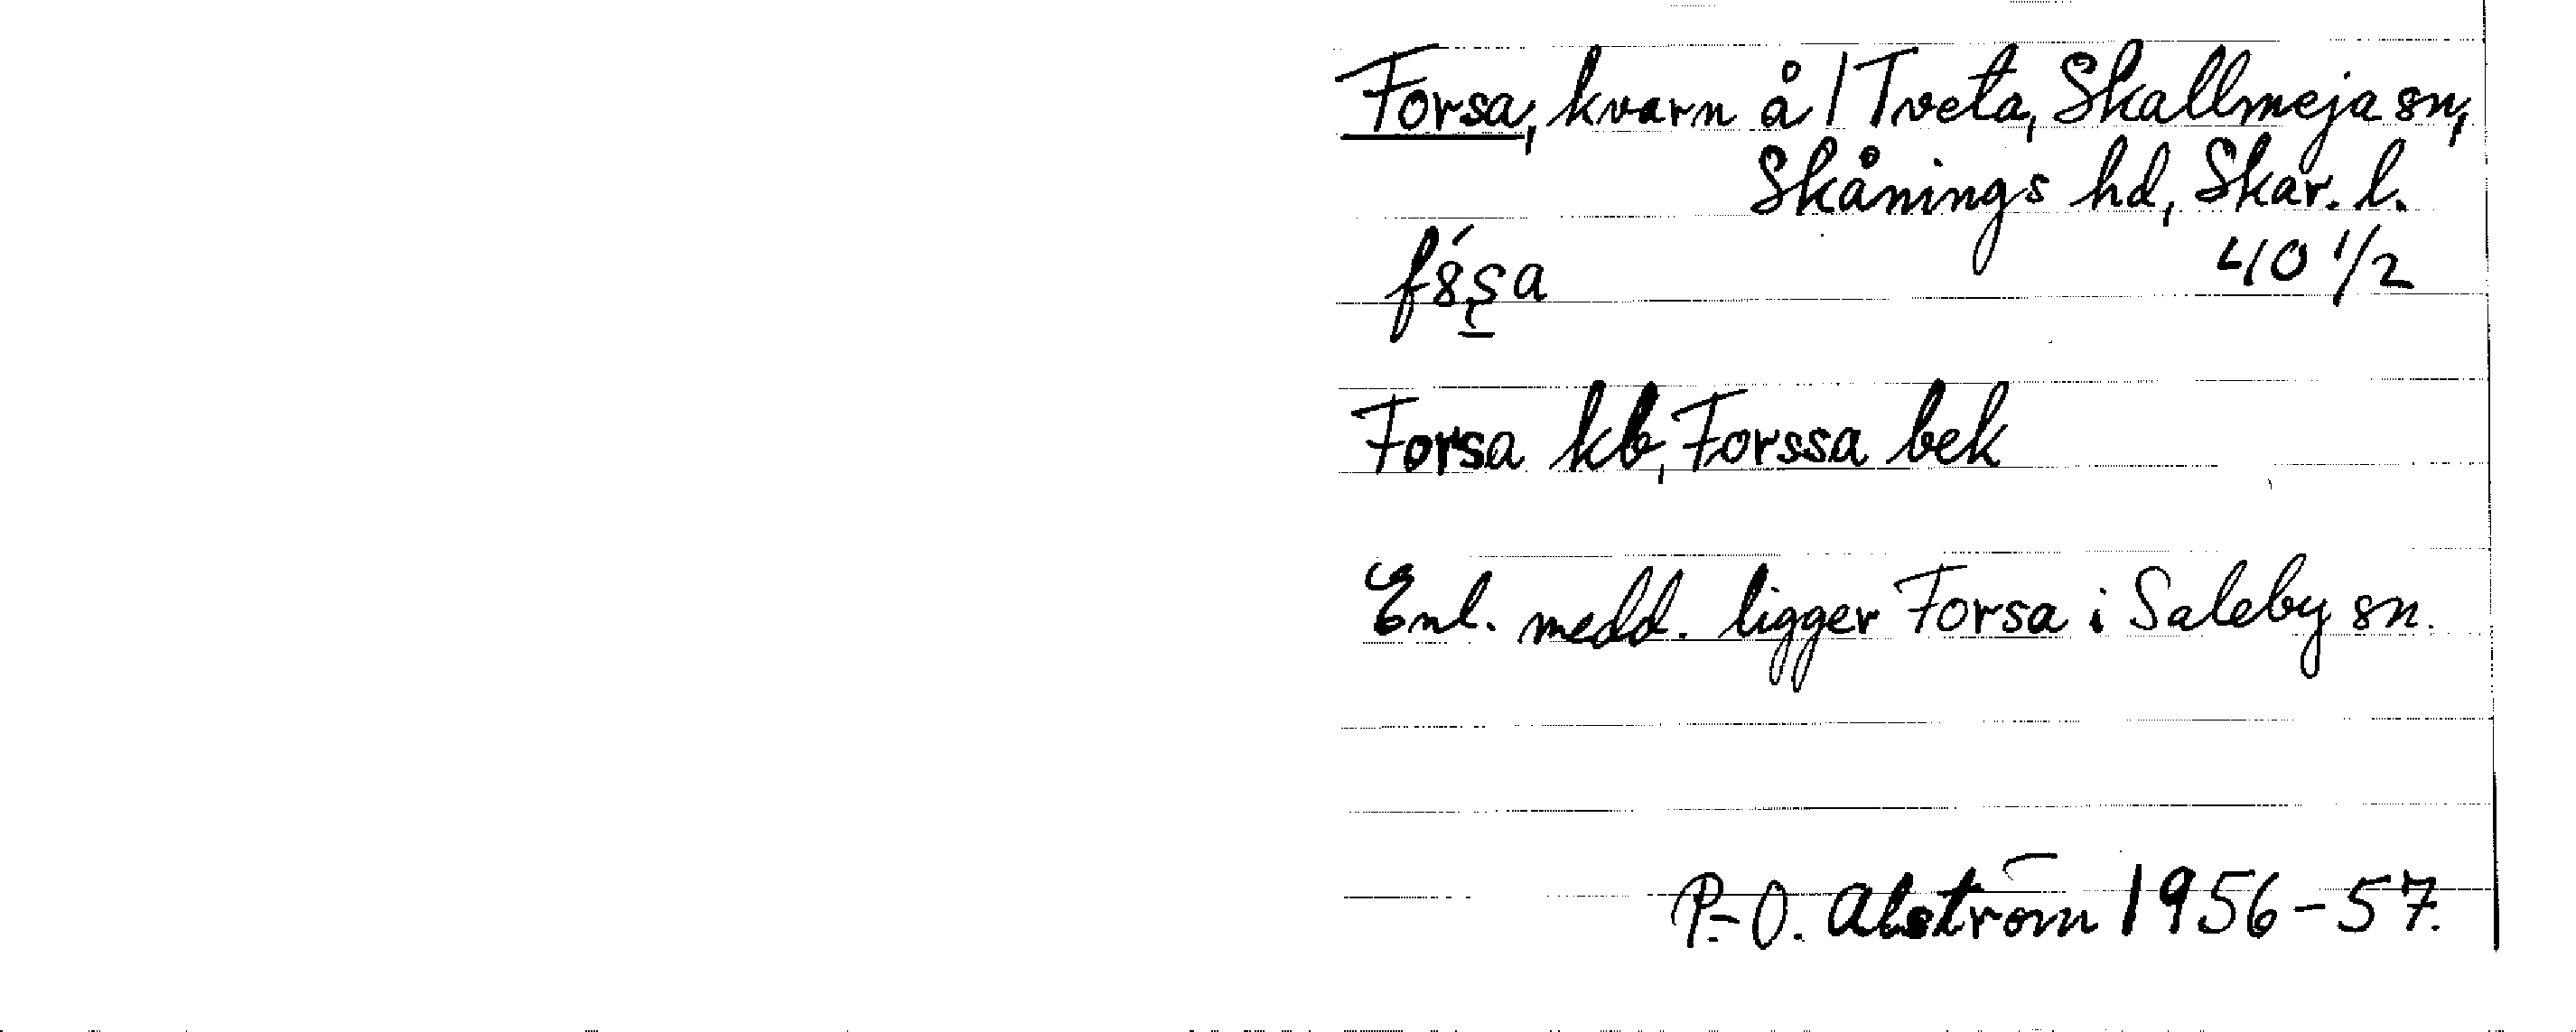 Forsa, kvarn å / Tveta, Skallmeja sn,
Skånings hd, Skar. l.
f8́s̠a 40 1/2
Forsa kb, Forssa bek
Enl. medd. ligger Forsa i Saleby sn.
P.-O. Alström 1956-57.